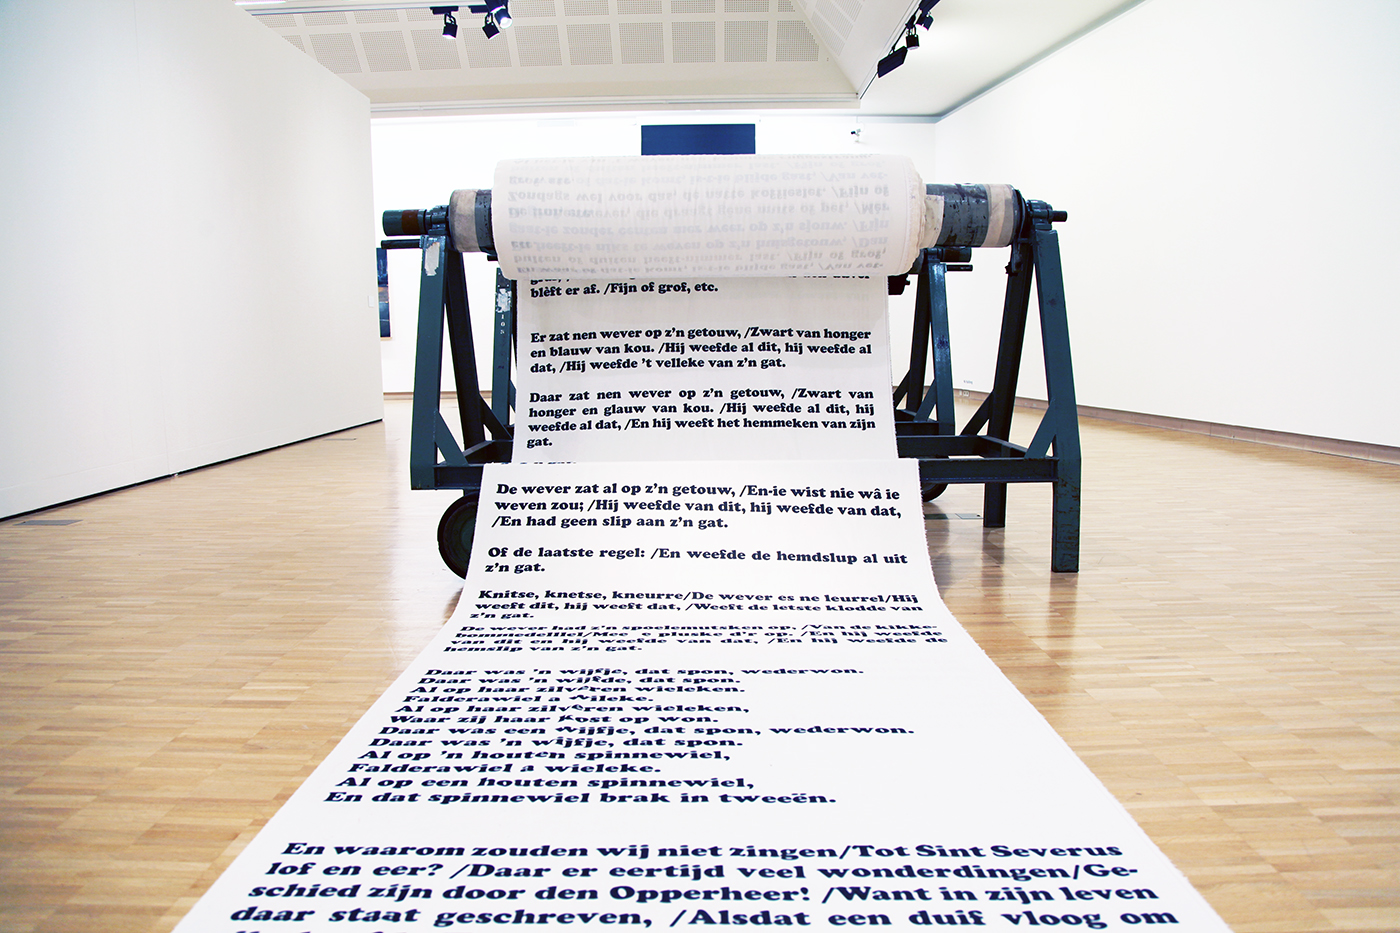 blèft er af. /Fijn of grof, etc.
Er zat nen wever op z'n getouw, /Zwart van honger
en blauw van kou. /Hij weefde al dit, hij weefde al
dat, /Hij weefde 't velleke van z'n gat.
Daar zat nen wever op z'n getouw, /Zwart van
honger en glauw van kou. /Hij weefde al dit, hij
weefde al dat, /En hij weeft het hemmeken van zijn
gat.
De wever zat al op z'n getouw, /En-ie wist nie wâ ie
weven zou; /Hij weefde van dit, hij weefde van dat,
/En had geen slip aan z'n gat.
Of de laatste regel: /En weefde de hemdslup al uit
z'n gat.
Knitse, knetse, kneurre/De wever es ne leurrel/Hij
weeft dit, hij weeft dat, /Weeft de letste klodde van
z'n gat.
De wever had z'n spoelemutsken op, /Van de kikke-
pluske d'r op. /En hij weefde
van dit en hij weefde van dat, /En hij weefde de
hemslip van z'n gat.
Daar was 'n wijfje, dat spon, wederwon.
Daar was 'n wijfde, dat spon.
Al op haar zilveren wieleken.
Falderawiel a wileke.
Al op haar zilveren wieleken,
Waar zij haar kost op won.
Daar was een wijfje, dat spon, wederwon.
Daar was 'n wijfje, dat spon.
Al op 'n houten spinnewiel,
Falderawiel a wieleke.
Al op een houten spinnewiel,
En dat spinnewiel brak in tweeën.
En waarom zouden wij niet zingen/Tot Sint Severus
lof en eer? /Daar er eertijd veel wonderdingen/Ge-
schied zijn door den Opperheer! /Want in zijn leven
daar staat geschreven, /Alsdat een duif vloog om